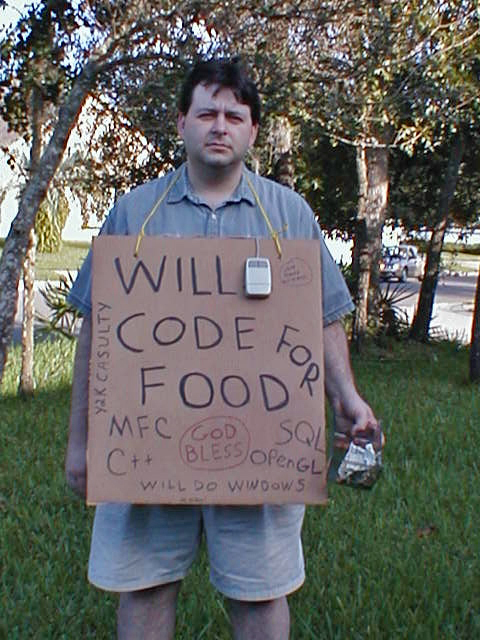 WILL
CODE FOR
FOOD
Y2K CASULTY
MFC
C++
GOD
BLESS
SQL
OPenGL
WILL DO WINDOWS